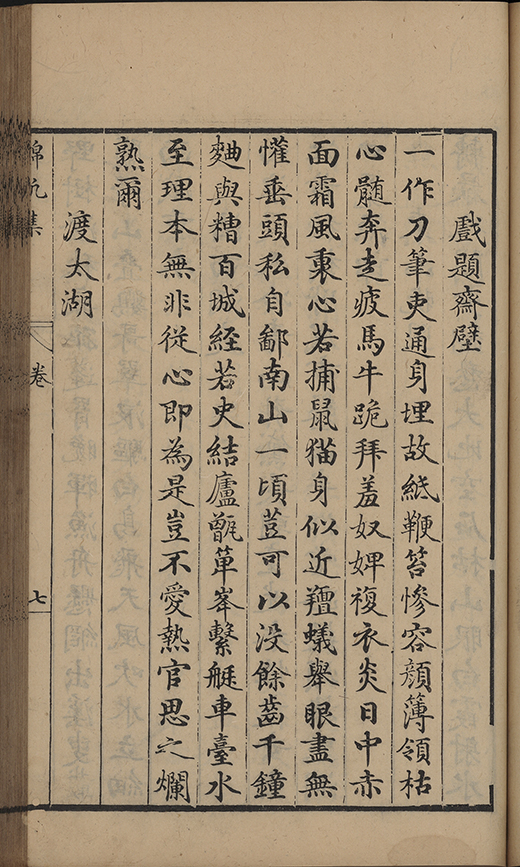 戲題齋壁
一作刀筆吏通身埋故紙鞭笞慘容顏簿領枯
心髓奔走疲馬牛跪拜羞奴婢複衣炎日中赤
面霜風裏心若捕鼠猫身似近羶蟻舉眼盡無
懽垂頭私自鄙南山一頃荳可以没餘齒千鐘
麯與糟百城經若史結廬甑簞峯繫艇車臺水
至理本無非從心即為是豈不愛熱官思之爛
熟爾
渡太湖
集 卷 七